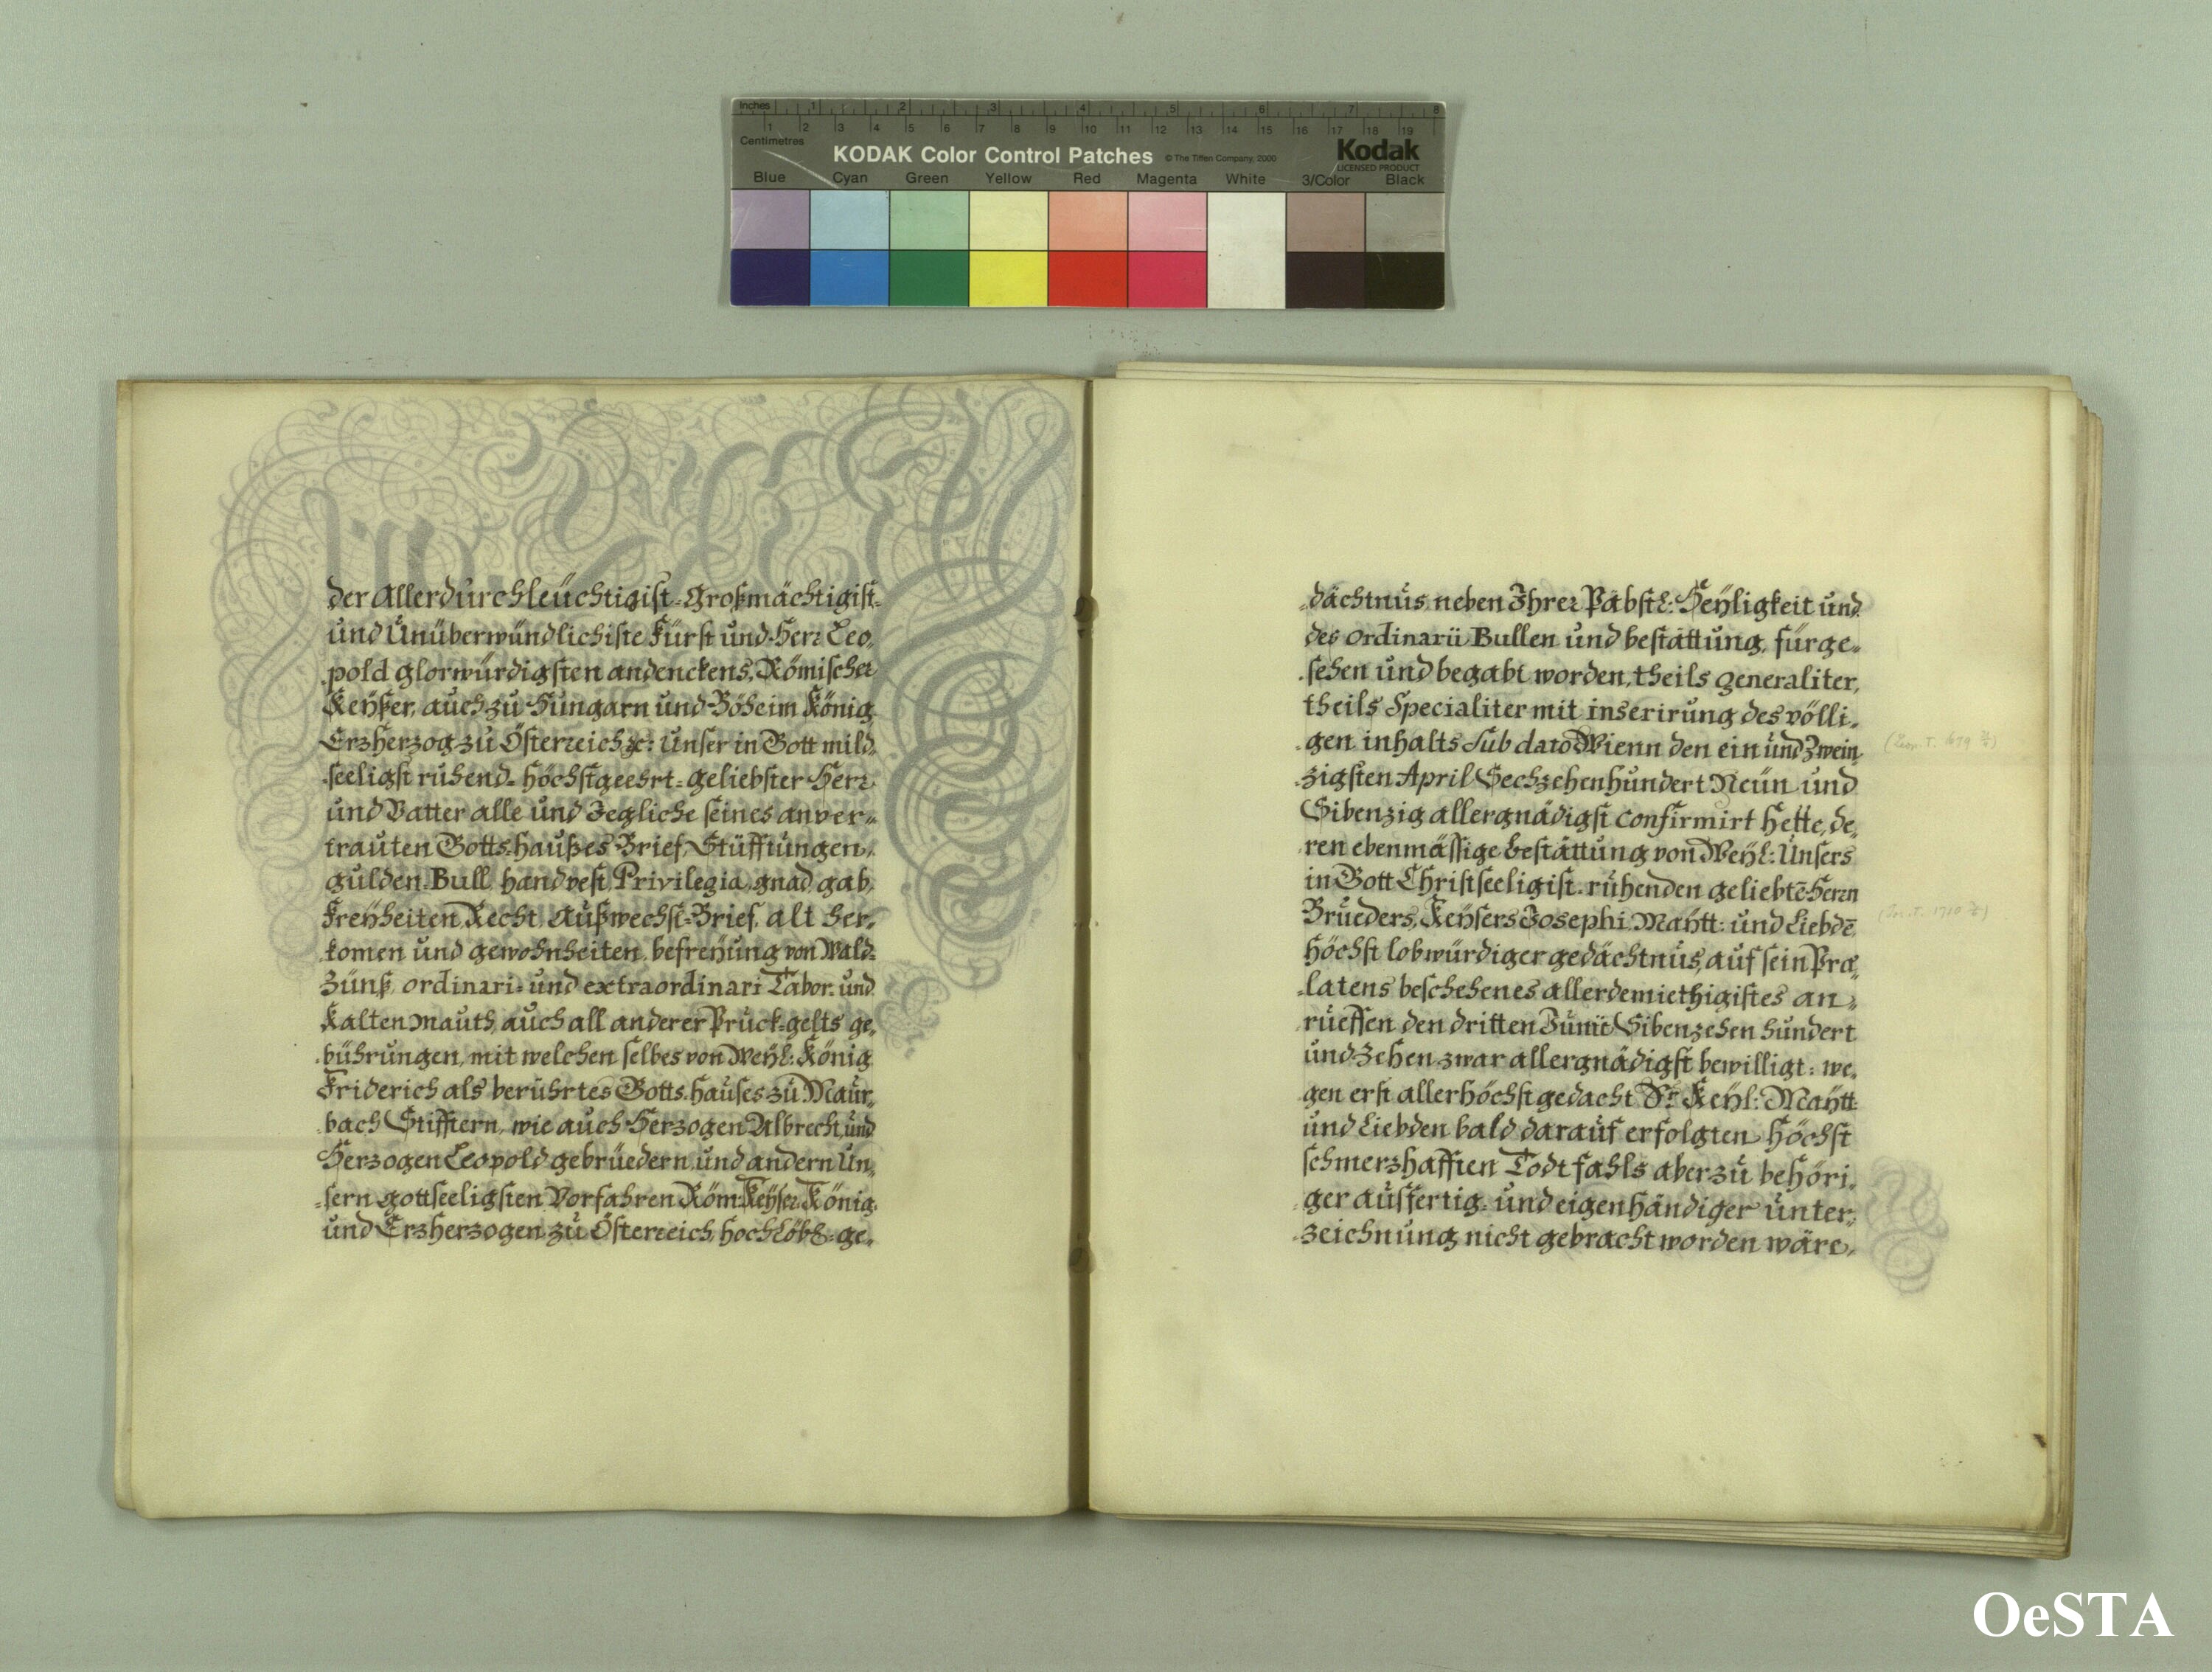 Inches 1 2 3 4 5 6 7 8
1 2 3 4 5 6 7 8 9 10 11 12 13 14 15 16 17 18 19
Centimetres
KODAK Color Control Patches © The Tiffen Company, 2000 Kodak
LICENSED PRODUCT
Blue Cyan Green Yellow Red Magenta White 3/Color Black
der Allerdurchleüchtigist-Großmächtigist-
und Unüberwündlichiste Fürst und Herr Leo„
pold glorwürdigsten andenckens, Römischer
Keyßer, auch zu Hungarn und Böheim König
Erzherzog zu Österreich ꝛc: Unser in Gott mild„
seeligst ruhend-höchstgeehrt-geliebster Herr
und Vatter alle und Jegliche seines anver„
trauten Gottshaußes Brief, Stüfftungen,
gulden-Bull, handvest, Privilegia, gnad, gab,
Freyheiten, Recht, Außwechsl-Brief, alt her„
komen und gewohnheiten, befreyung von Wald-
Zünß, ordinari- und extraordinari Tabor- und
Kalten mauth, auch all anderer Pruck-gelts ge„
bührungen, mit welchen selbes von Weyl: König
Friderich als berührtes Gottshauses zu Maur„
bach Stifftern, wie auch Herzogen Albrecht, und
Herzogen Leopold gebrüedern und andern Un„
sern gottseeligsten Vorfahren Röm: Keyser, König,
und Erzherzogen zu Österreich, hochlöbl: ge„
dächtnus, neben Ihrer Päbstl: Heyligkeit und
des ordinarii Bullen und bestättung, fürge„
sehen und begabt worden, theils generaliter,
theils Specialiter mit inserirung des völli„
gen inhalts Sub dato Wienn den ein und Zwein„
zigsten April Sechzehenhundert Neün und
Sibenzig allergnädigst confirmirt hette, de„
ren ebenmässige bestättung von Weyl: Unsers
in Gott Christseeligist-ruhenden geliebtē Herrn
Brueders, Keysers Josephi Maytt: und Liebdē
höchst lobwürdiger gedächtnus, auf sein Præ„
latens beschehenes allerdemiethigistes an„
rüeffen den dritten Junii Sibenzehen hundert
und Zehen zwar allergnädigst bewilligt: we„
gen erst allerhöchst gedacht Sr Keyl: Maytt:
und Liebden bald darauf erfolgten höchst
schmerzhafften Todtfahls aber zu behöri„
ger ausfertig- und eigenhändiger unter„
zeichnung nicht gebracht worden wäre,
OeSTA